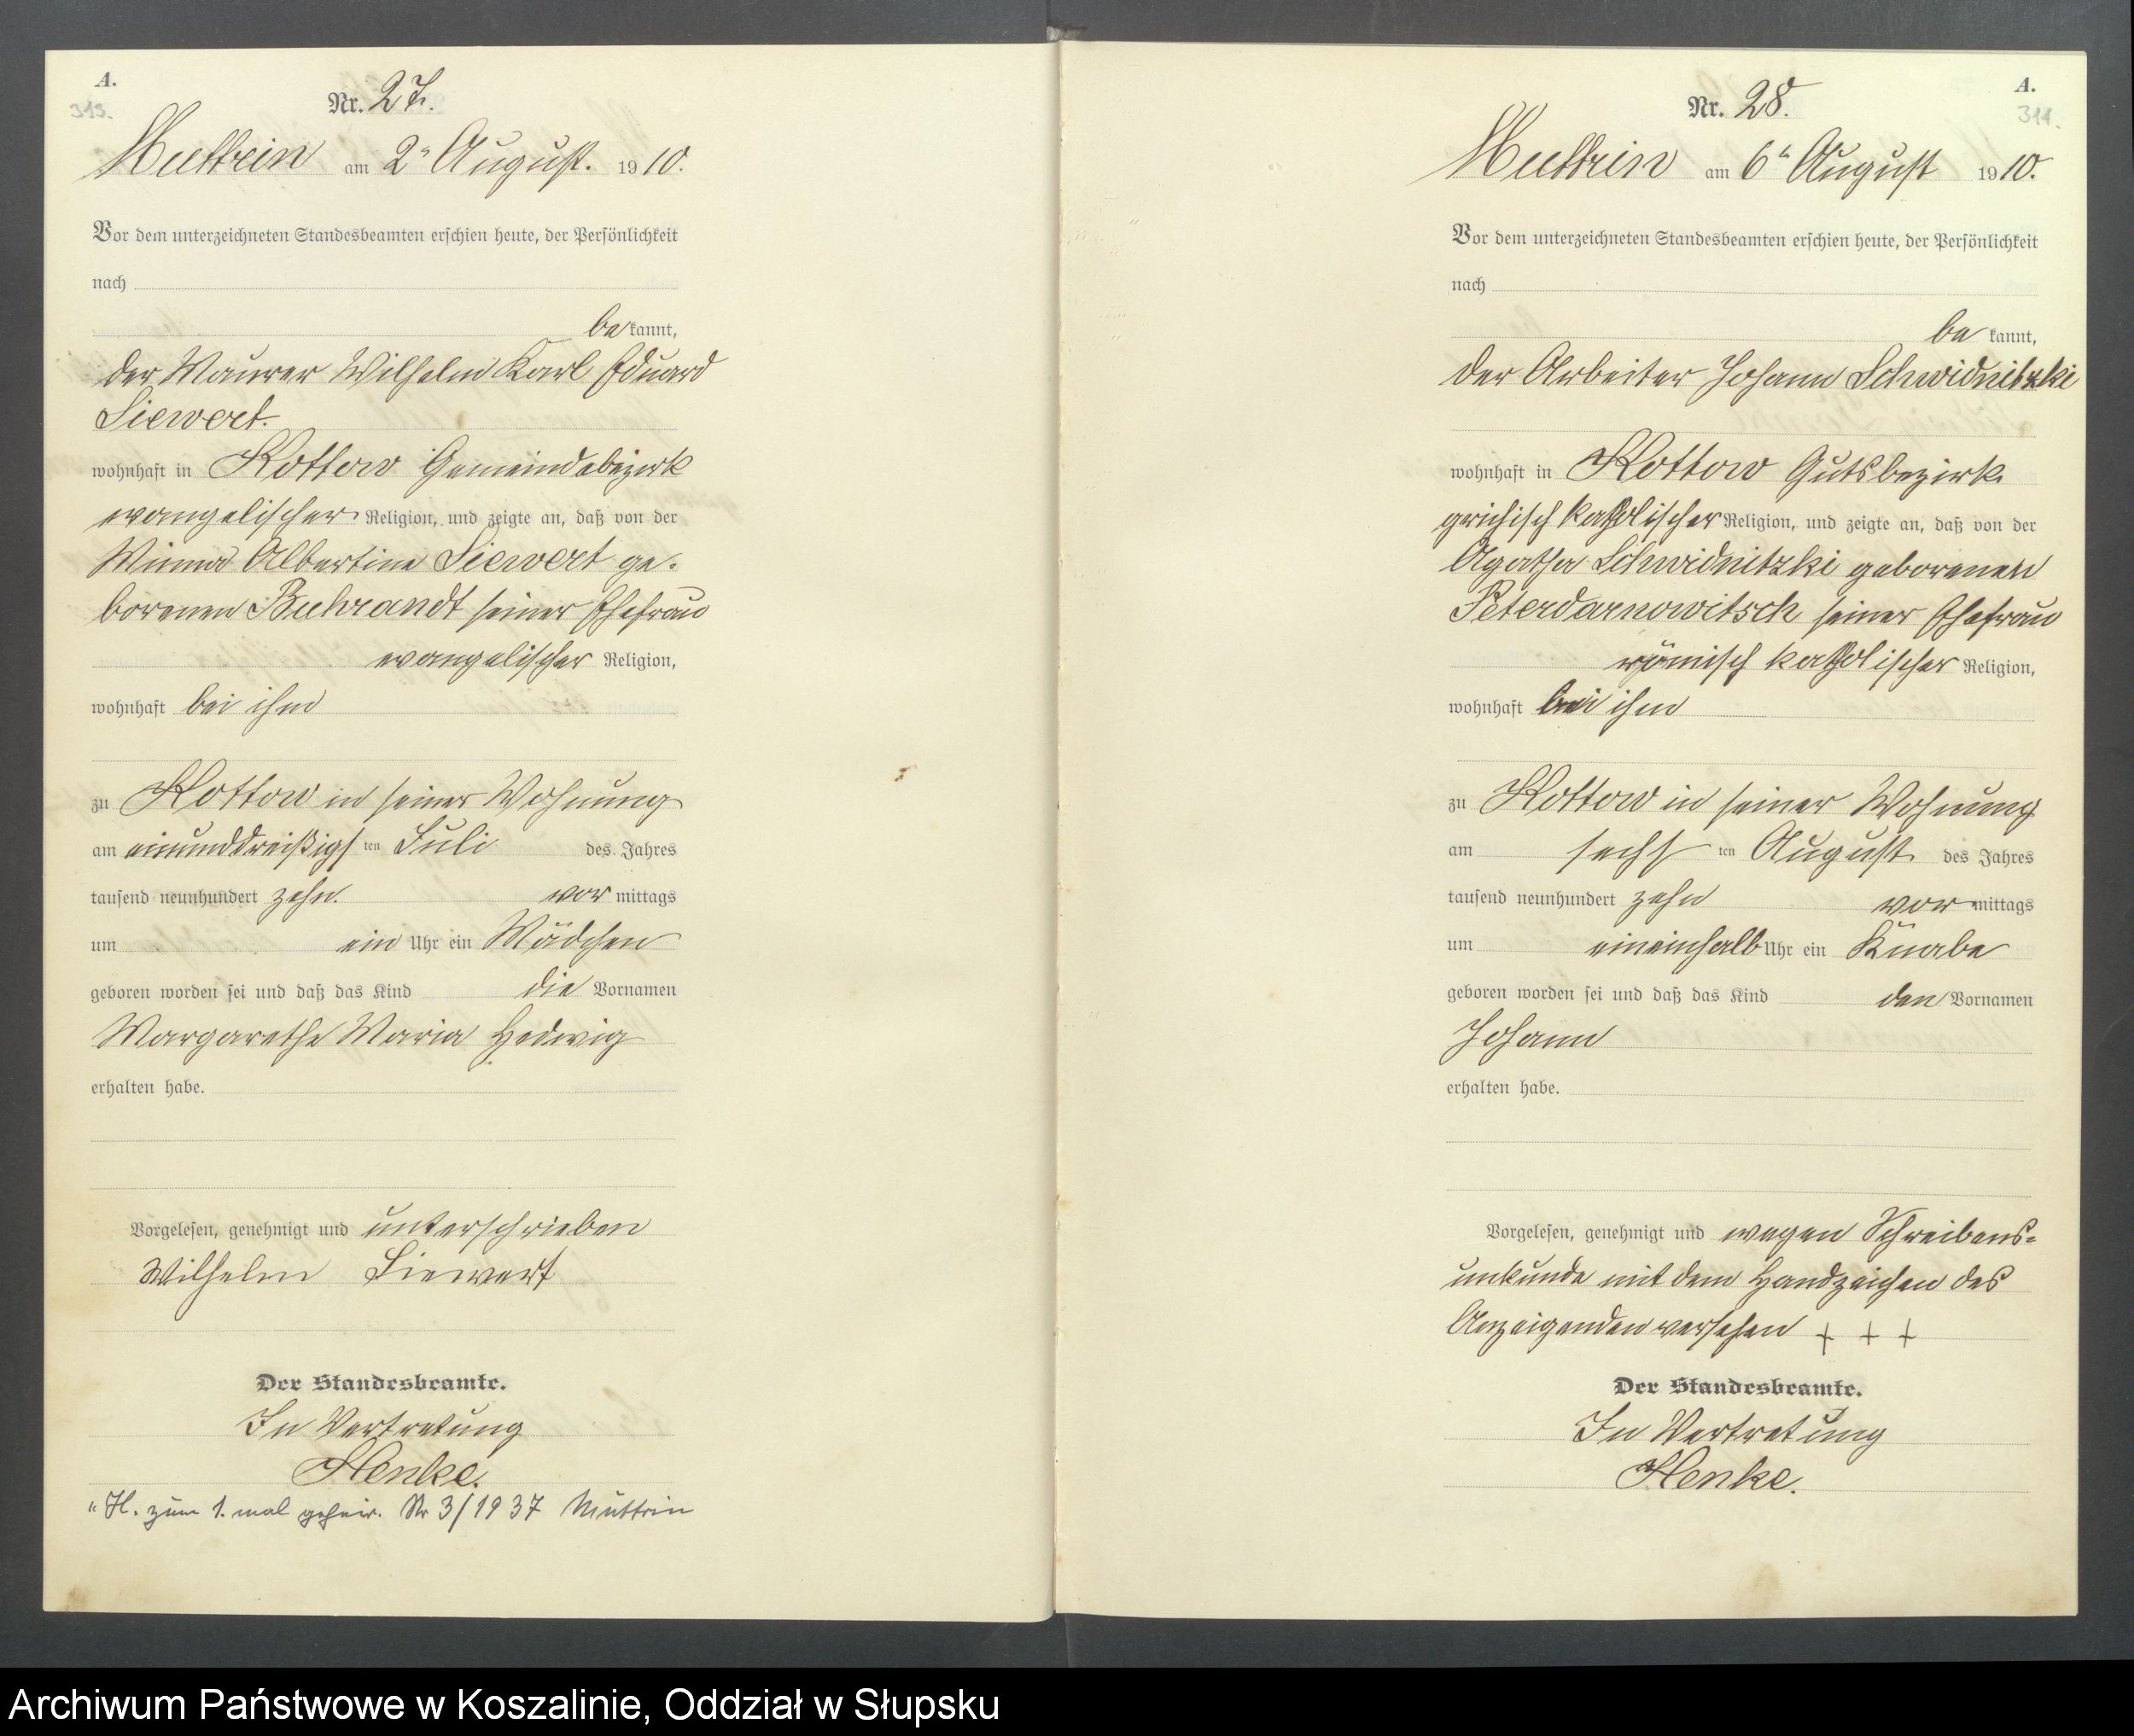 A.
313.
Nr. 27.
Muttrin am 2ⁿ August. 1910.
Vor dem unterzeichneten Standesbeamten erschien heute, der Persönlichkeit
nach
bekannt,
der Maurer Wilhelm Karl Eduard
Siewert.
wohnhaft in Kottow Gemeindebezirk
evangelischer Religion, und zeigte an, daß von der
Minna Albertine Siewert ge-
borenen Buhrandt seiner Ehefrau
evangelischer Religion,
wohnhaft bei ihm
zu Kottow in seiner Wohnung
am einunddreißigsten Juli des Jahres
tausend neunhundert zehn. vormittags
um ein Uhr ein Mädchen
geboren worden sei und daß das Kind die Vornamen
Margarethe Maria Hedwig
erhalten habe.
Vorgelesen, genehmigt und unterschrieben
Wilhelm Siewert
Der Standesbeamte.
In Vertretung
Henke.
H. zum 1. mal geheir. Nr 3/1937 Muttrin
A.
314.
Nr. 28.
Muttrin am 6ⁿ August 1910.
Vor dem unterzeichneten Standesbeamten erschien heute, der Persönlichkeit
nach
bekannt,
der Arbeiter Johann Schwidnitzki
wohnhaft in Kottow Gutsbezirk
grichisch katholischer Religion, und zeigte an, daß von der
Agatha Schwidnitzki geborenen
Peterdarnowitsch seiner Ehefrau
römisch katholischer Religion,
wohnhaft bei ihm
zu Kottow in seiner Wohnung
am sechsten August des Jahres
tausend neunhundert zehn vormittags
um eineinhalb Uhr ein Knabe
geboren worden sei und daß das Kind den Vornamen
Johann
erhalten habe.
Vorgelesen, genehmigt und wegen Schreibens-
unkunde mit dem Handzeichen des
Anzeigenden versehen + + +
Der Standesbeamte.
In Vertretung
Henke.
Archiwum Państwowe w Koszalinie, Oddział w Słupsku